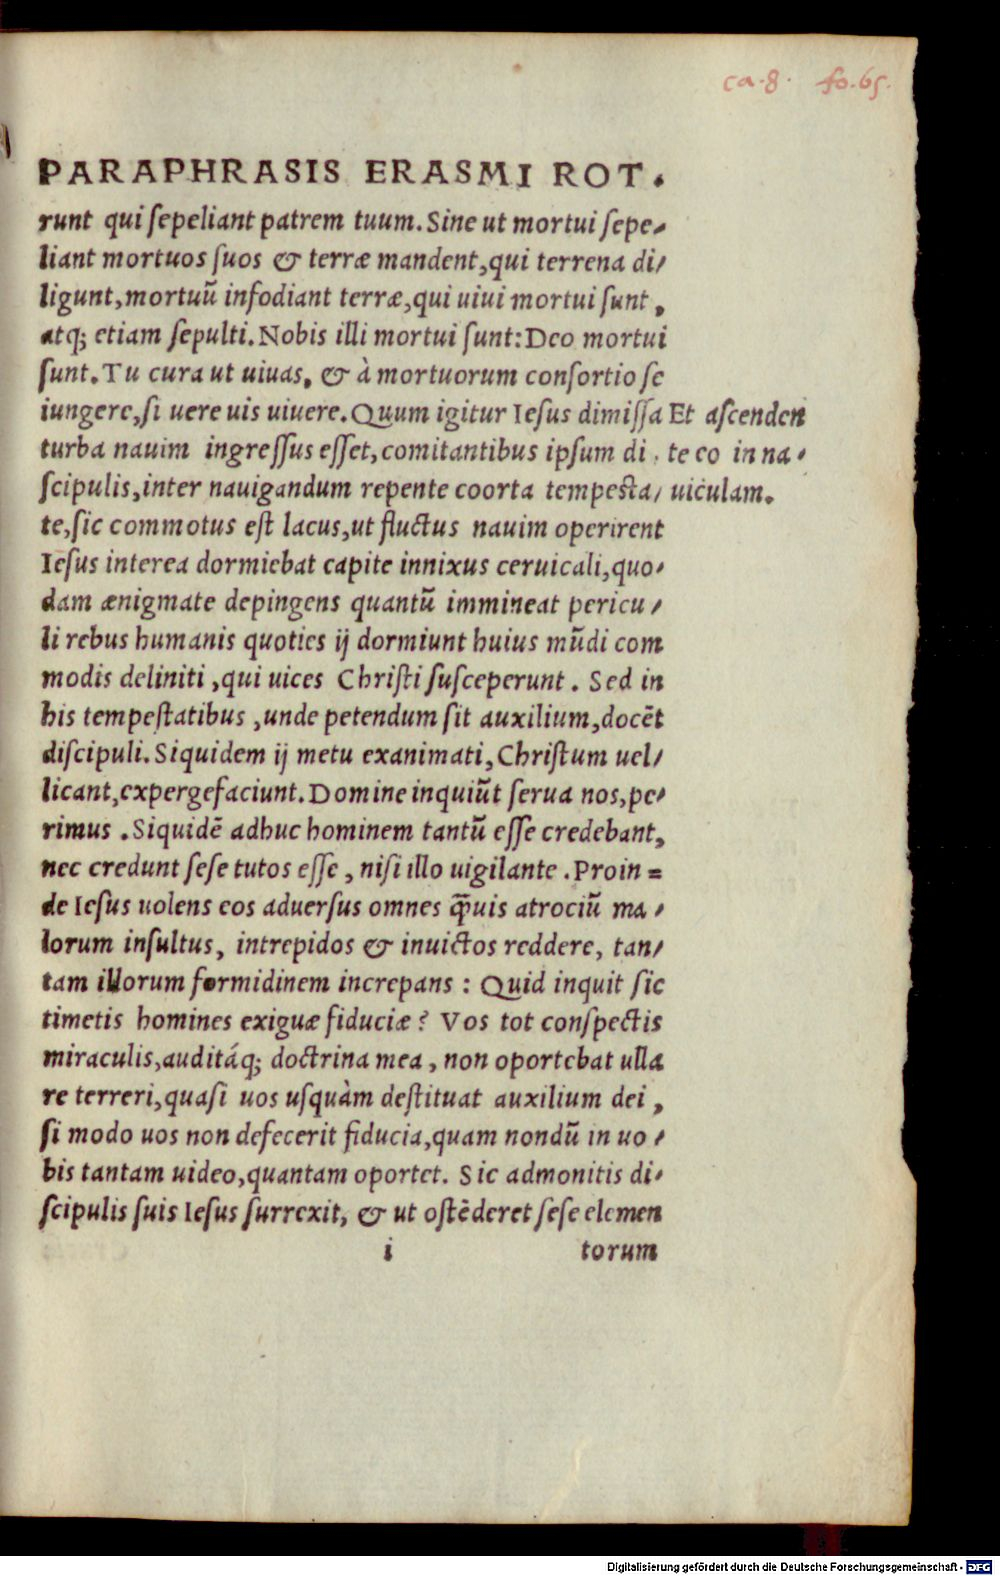 ca.8. fo.65.
PARAPHRASIS ERASMI ROT.
runt qui sepeliant patrem tuum. Sine ut mortui sepe/
liant mortuos suos & terræ mandent, qui terrena di/
ligunt, mortuũ infodiant terræ, qui uiui mortui sunt,
atq; etiam sepulti. Nobis illi mortui sunt: Deo mortui
sunt. Tu cura ut uiuas, & à mortuorum consortio se
iungere, si uere uis uiuere. Quum igitur Iesus dimissa
turba nauim ingressus esset, comitantibus ipsum di
scipulis, inter nauigandum repente coorta tempesta/
te, sic commotus est lacus, ut fluctus nauim operirent
Iesus interea dormiebat capite innixus ceruicali, quo/
dam ænigmate depingens quantũ immineat pericu/
li rebus humanis quoties ij dormiunt huius mũdi com
modis deliniti, qui uices Christi susceperunt. Sed in
his tempestatibus, unde petendum sit auxilium, docẽt
discipuli. Siquidem ij metu exanimati, Christum uel/
licant, expergefaciunt. Domine inquiũt serua nos, pe/
rimus. Siquidẽ adhuc hominem tantũ esse credebant,
nec credunt sese tutos esse, nisi illo uigilante. Proin=
de Iesus uolens eos aduersus omnes q̃uis atrociũ ma/
lorum insultus, intrepidos & inuictos reddere, tan/
tam illorum formidinem increpans: Quid inquit sic
timetis homines exiguæ fiduciæ? Vos tot conspectis
miraculis, auditáq; doctrina mea, non oportebat ulla
re terreri, quasi uos usquàm destituat auxilium dei,
si modo uos non defecerit fiducia, quam nondũ in uo/
bis tantam uideo, quantam oportet. Sic admonitis di/
scipulis suis Iesus surrexit, & ut ostẽderet sese elemen
i torum
Et ascenden
te eo in na/
uiculam.
Digitalisierung gefördert durch die Deutsche Forschungsgemeinschaft - DFG